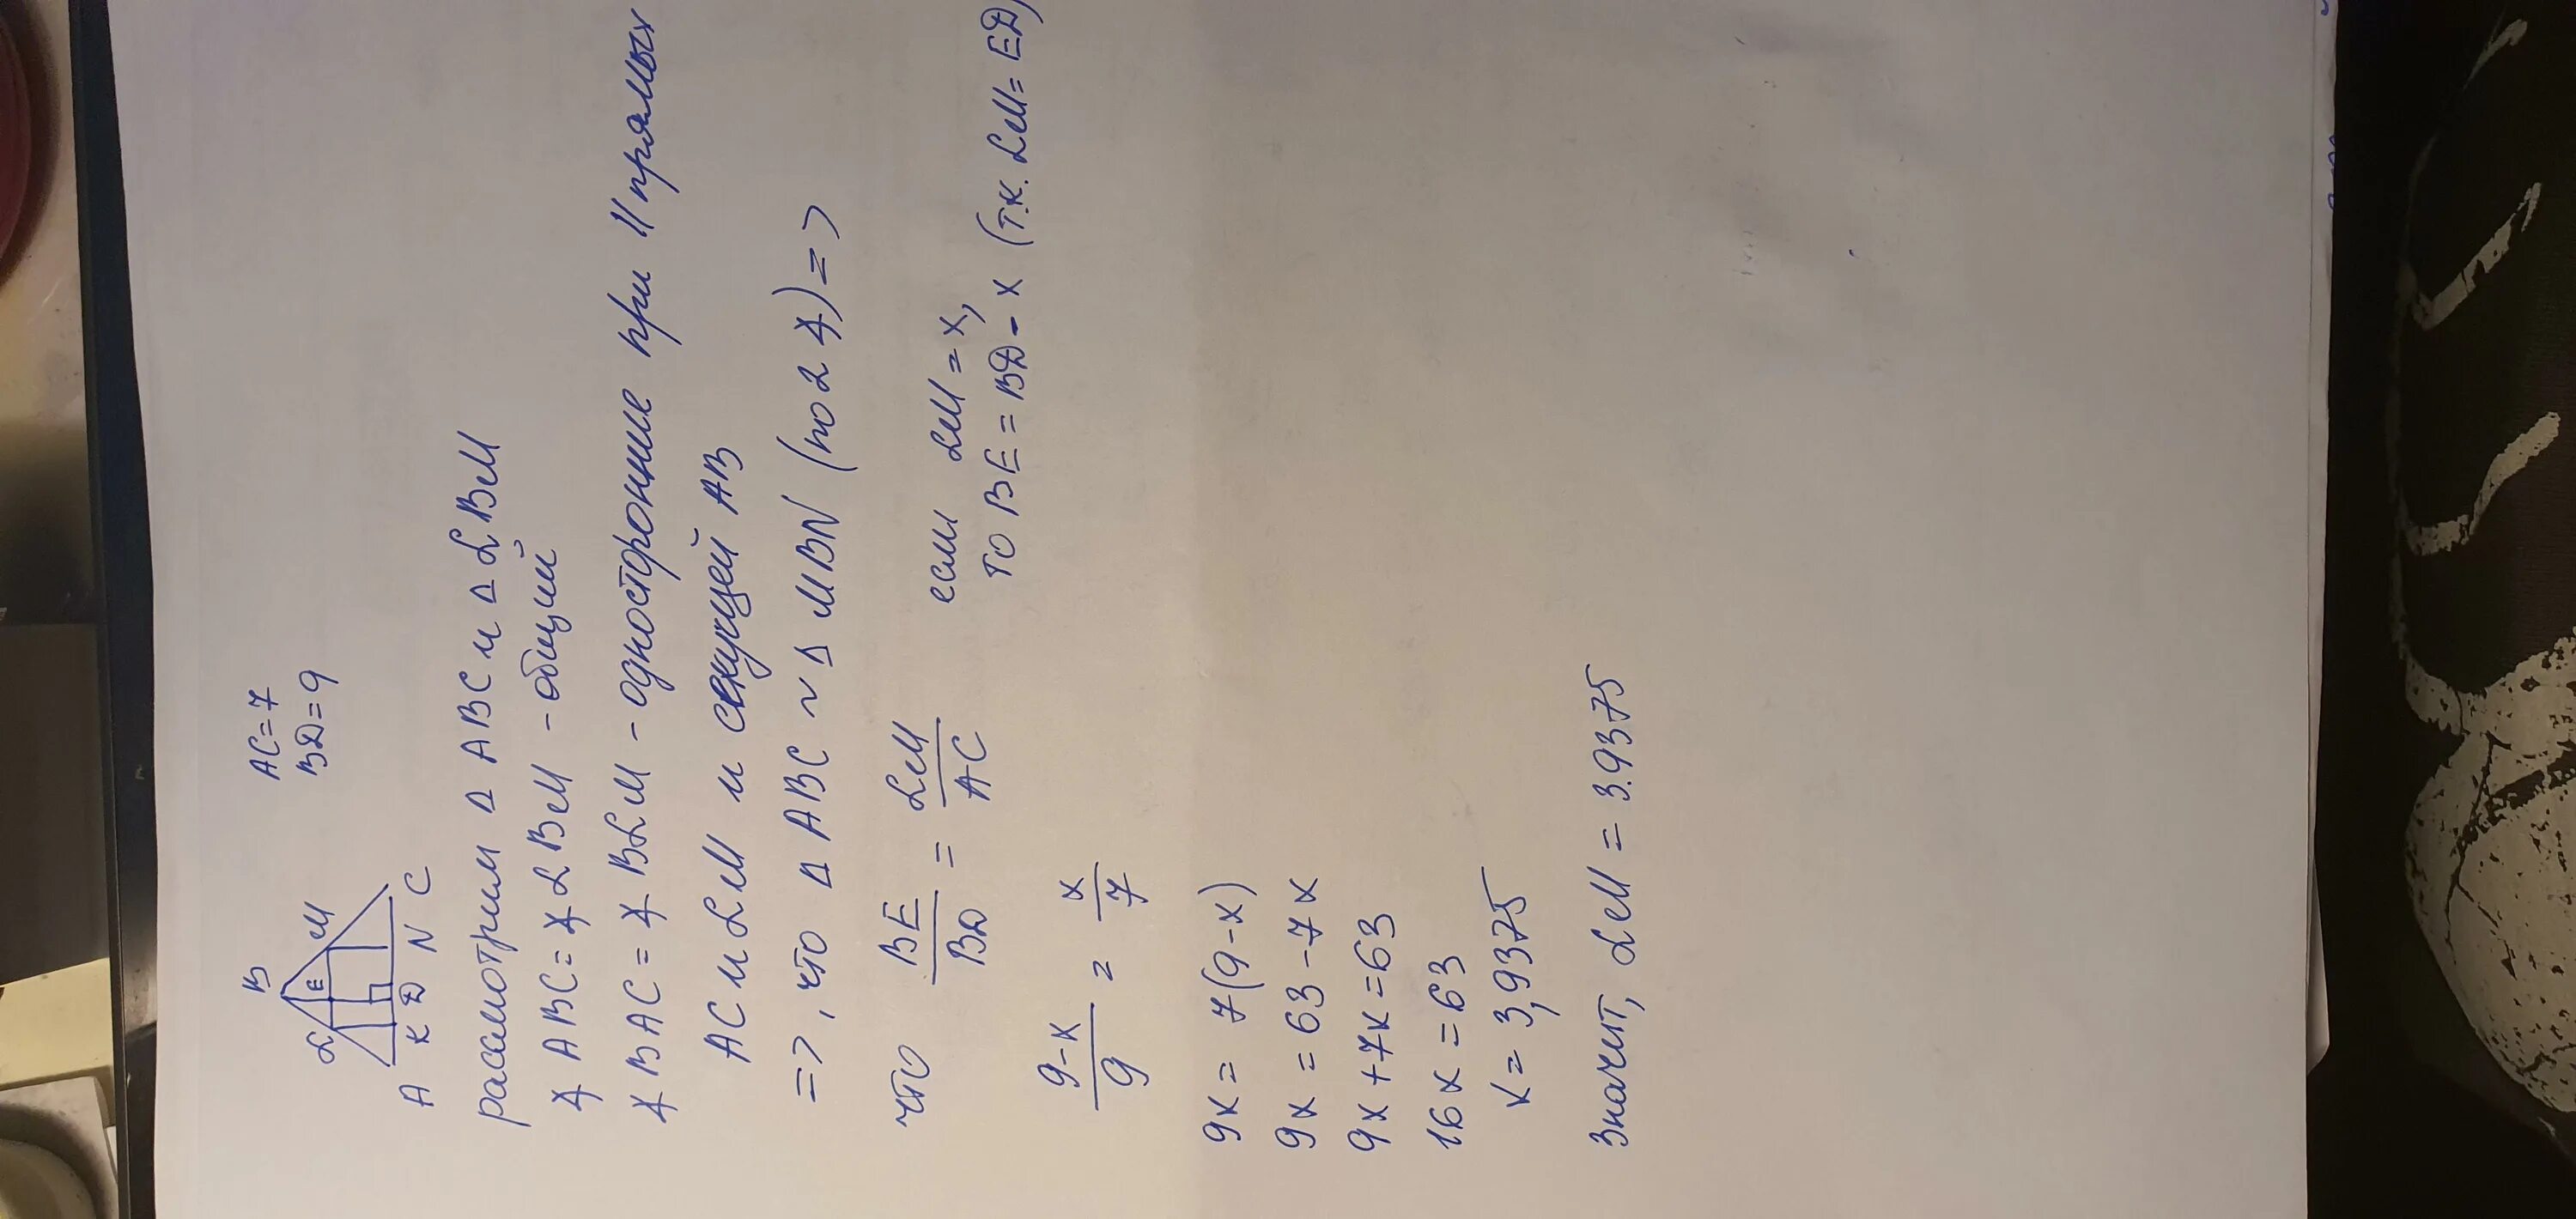 AC=7
BD=9
B
L
E
M
A
K
D
N
C
рассмотрим Δ ABC и Δ LBM
∡ ABC = ∡ LBM - общий
∡ BAC = ∡ BLM - односторонние при || прямых
AC и LM и секущей AB
=>, что Δ ABC ~ Δ MBN (по 2 ∡) =>
что BE/BD = LM/AC если LM = x,
то BE = BD - x (т.к. LM = ED)
9-x/9 = x/7
9x = 7(9-x)
9x = 63 - 7x
9x + 7x = 63
16x = 63
x = 3,9375
Значит, LM = 3.9375